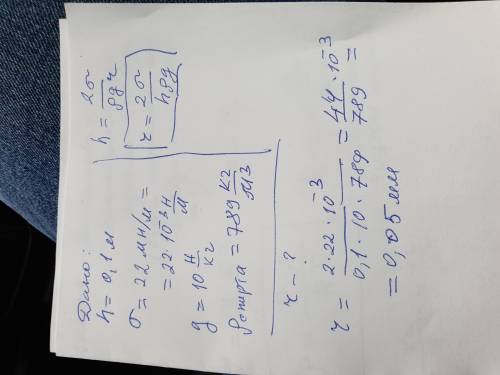 Дано:
h = 0,1 м
σ = 22 мН/м =
= 22·10⁻³ Н/м
g = 10 Н/кг
ρспирта = 789 кг/м3
h = 2σ/ρgr
r = 2σ/hρg
r – ?
r = 2·22·10⁻³/0,1·10·789 = 44·10⁻³/789 =
= 0,05 мм